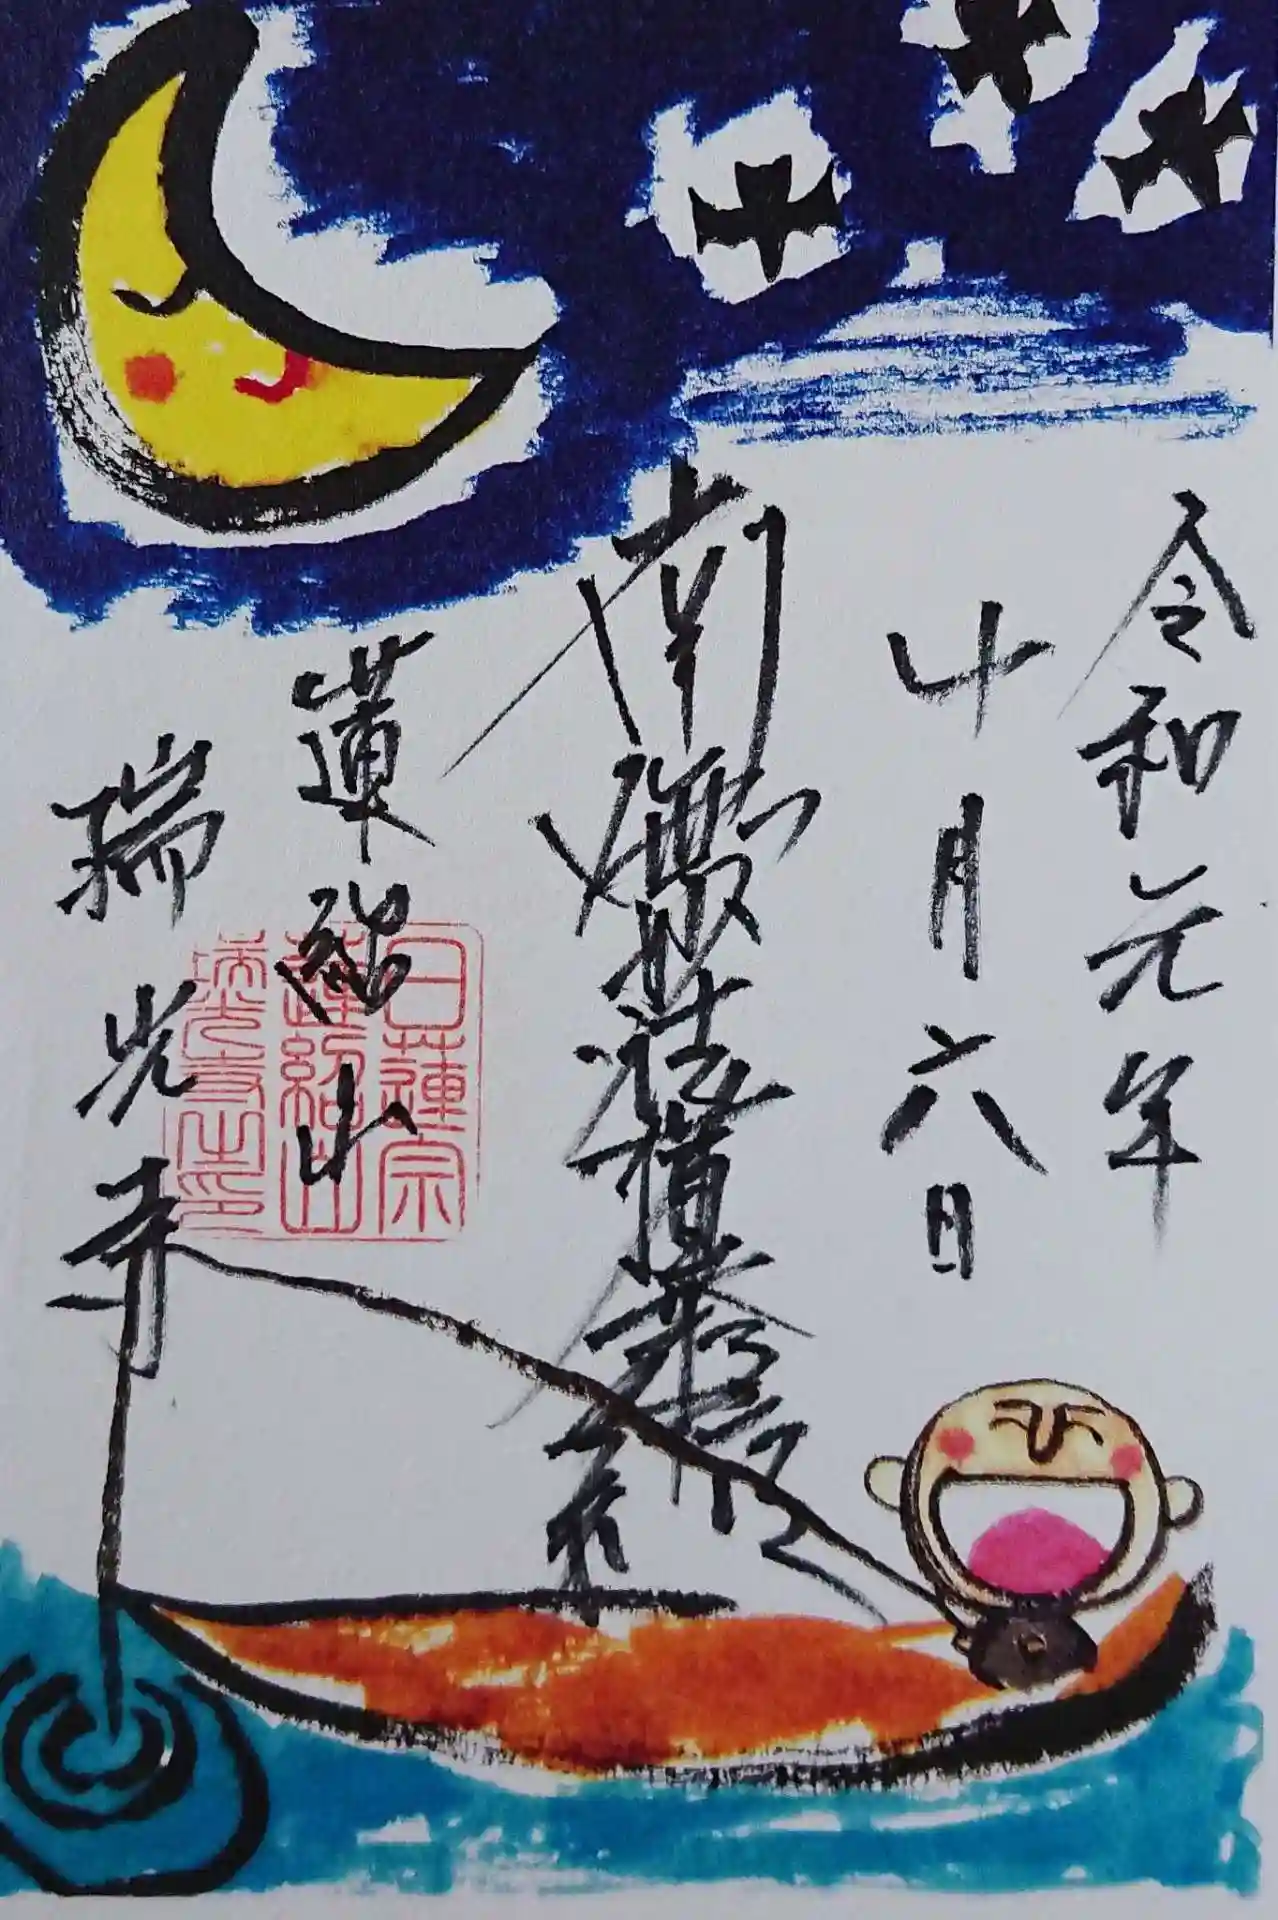 令和元年
十月六日
南無妙法蓮華経
蓮紹山
瑞光寺
日蓮宗
蓮紹山
瑞光寺之印